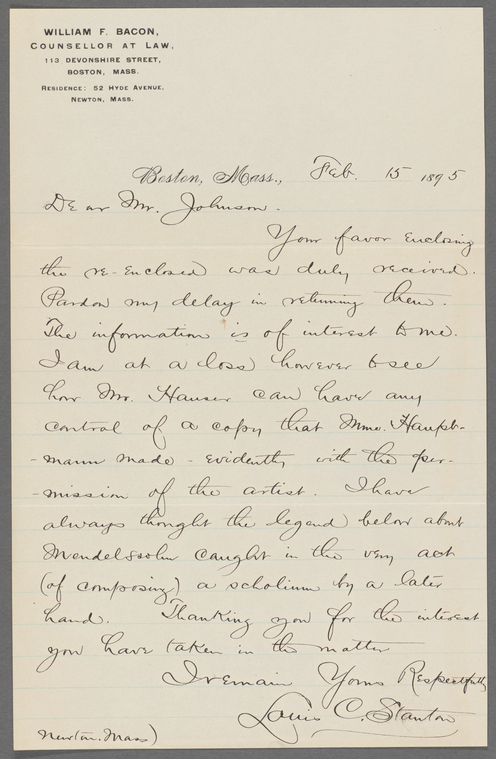 WILLIAM F. BACON,
COUNSELLOR AT LAW,
113 DEVONSHIRE STREET,
BOSTON, MASS.
RESIDENCE: 52 HYDE AVENUE.
NEWTON, MASS.
Boston, Mass., Feb. 15 1895
Dear Mr. Johnson.
Your favor enclosing
the re-enclosed was duly received.
Pardon my delay in returning them.
The information is of interest to me.
I am at a loss however to see
how Mr. Hauser can have any
control of a copy that Mme. Haupt-
-mann made - evidently with the per-
-mission of the artist. I have
always thought the legend below about
Mendelssohn caught in the very act
(of composing) a scholium by a later
hand. Thanking you for the interest
you have taken in the matter
I remain Yours Respectfully
Louis C. Stanton
Newton. Mass)